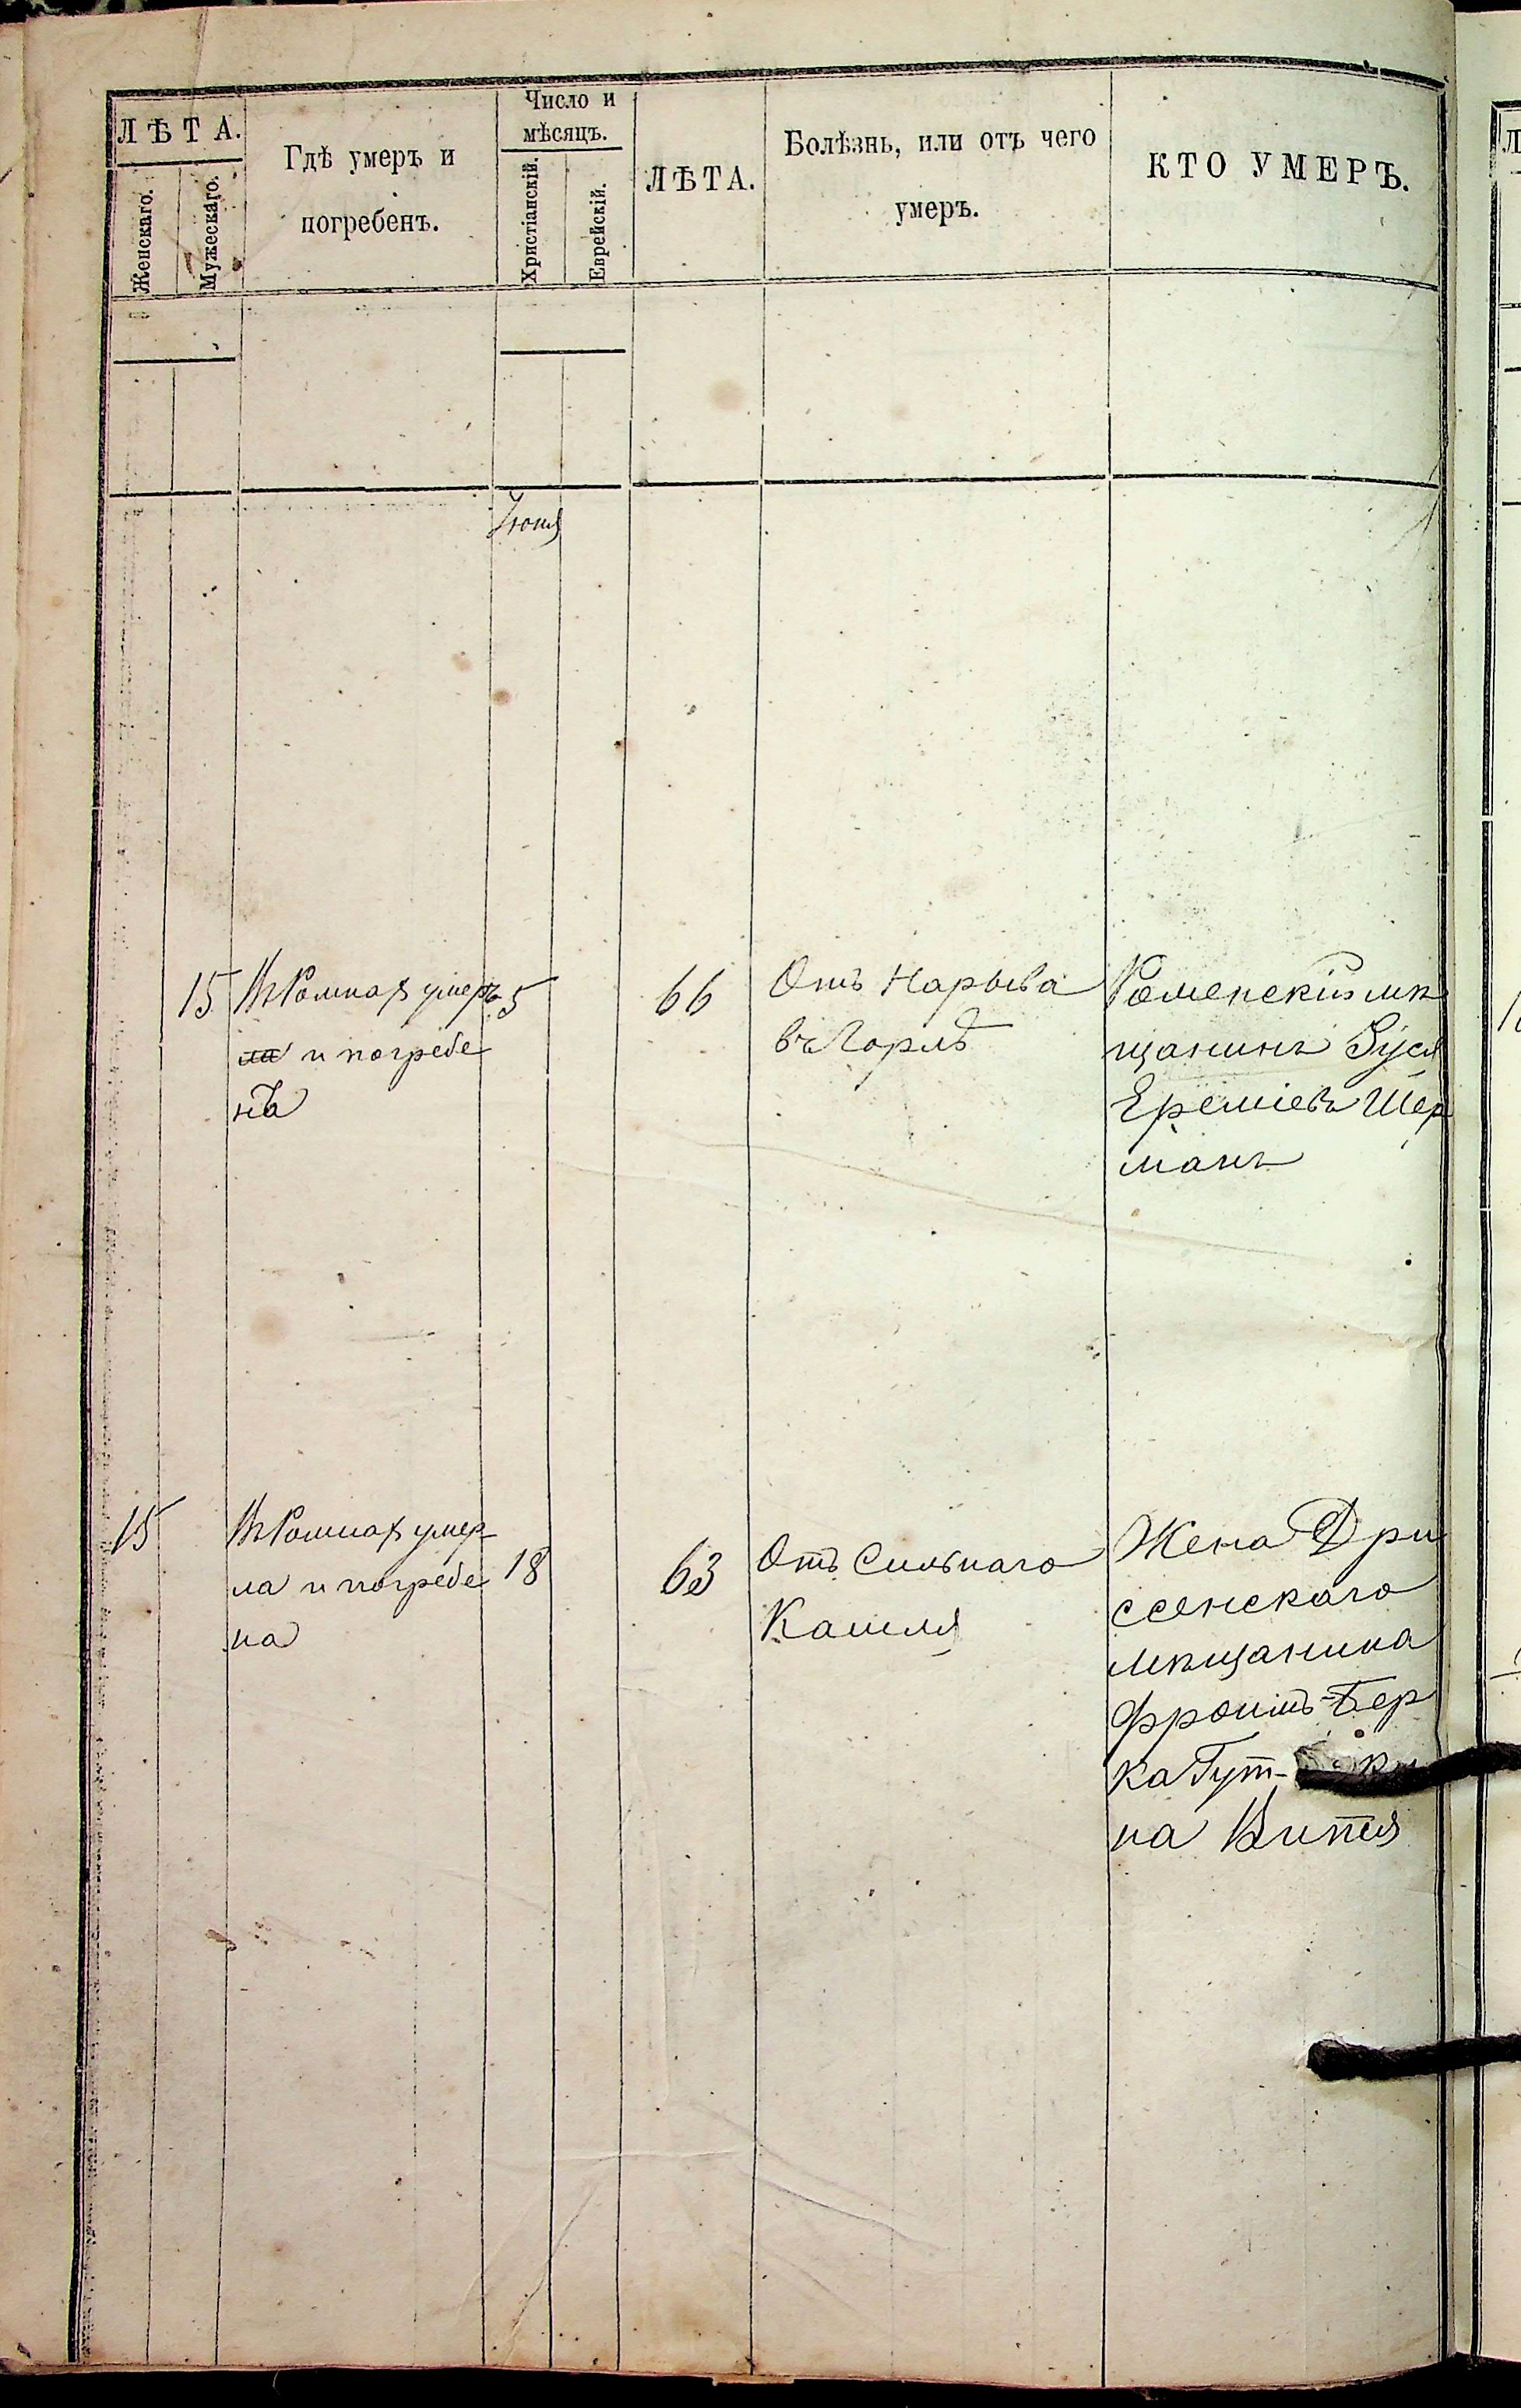 ЛѢТА.
Женскаго.
Мужескаго.
Гдѣ умеръ и
погребенъ.
Число и
мѣсяцъ.
Христіанскій.
Еврейскій.
ЛѢТА.
Болѣзнь, или отъ чего
умеръ.
КТО УМЕРЪ.
Іюня
15
Въ Ромнах умеръ
ла и погребе
нъ
5
66
Отъ Нарыва
въ Горлѣ
Роменскій мѣ
щанинъ Зуся
Еремiевъ Шер
манъ
15
Въ Ромнах умер
ла и погребе
на
18
63
Отъ Сильнаго
Кашля
Жена Дри
ссенскаго
мѣщанина
Фроимъ-Бер
ка Гут-
на